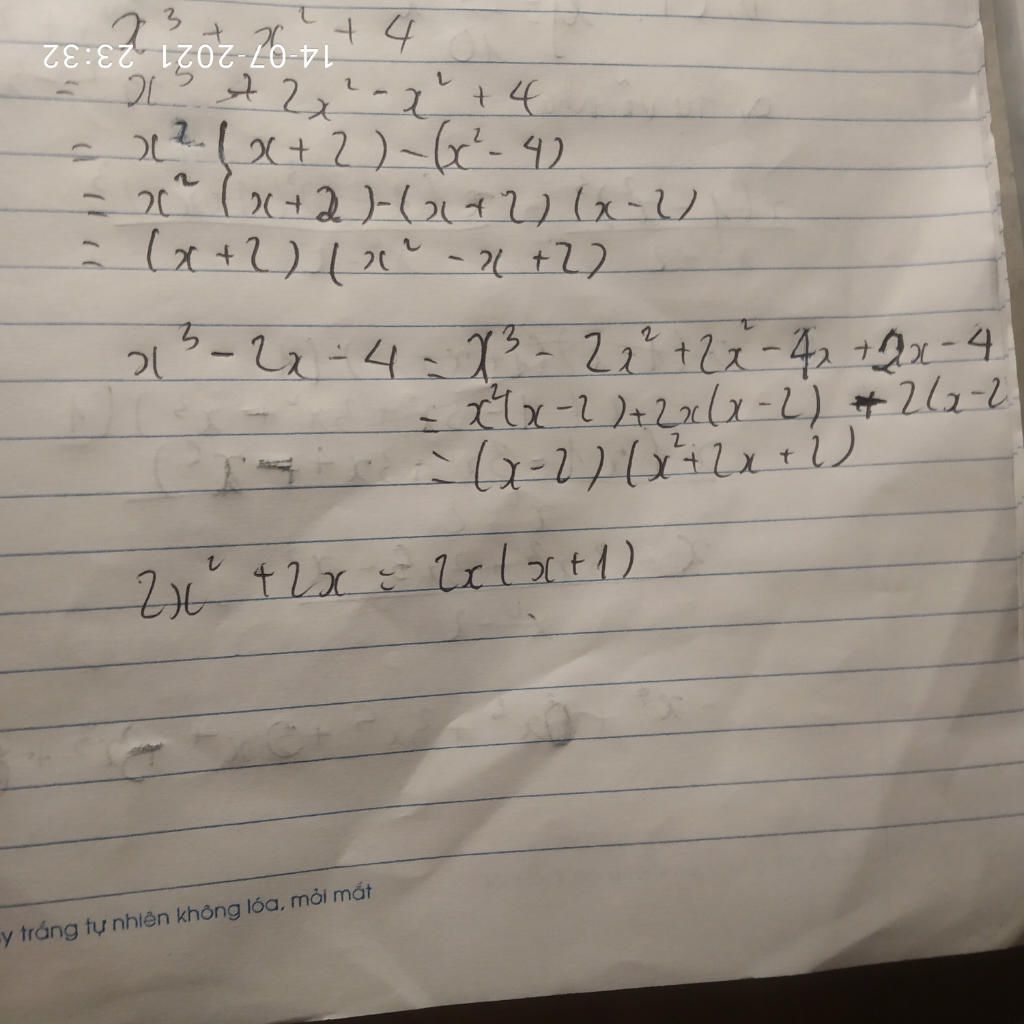 x³ + x² + 4
14-07-2021 23:32
= x³ + 2x² - x² + 4
= x² (x + 2) - (x² - 4)
= x² (x + 2) - (x + 2) (x - 2)
= (x + 2) (x² - x + 2)
x³ - 2x - 4 = x³ - 2x² + 2x² - 4x + 2x - 4
= x²(x - 2) + 2x(x - 2) + 2(x - 2
= (x - 2) (x² + 2x + 2)
2x² + 2x = 2x(x + 1)
y trắng tự nhiên không lóa, mỏi mắt